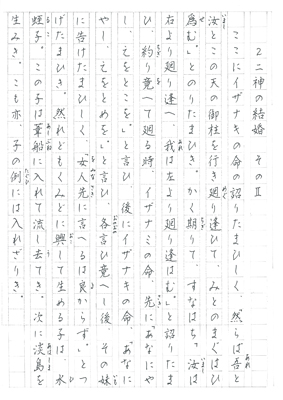 ２二神の結婚　そのⅡ
ここにイザナキの命の詔りたまひしく、然らば吾と
汝とこの天の御柱を行き廻り逢ひて、みとのまぐはひ
為む。」とのりたまひき。かく期りて、すなはち、「汝は
右より廻り逢へ。我は左より廻り逢はむ。」と詔りたま
ひ、約り竟へて廻る時、イザナミの命、先に「あなにや
し、えをとこを」と言ひ、後にイザナキの命、「あなに
やし、えをとめを。」と言ひ、各言ひ竟へし後、その妹
に告げたまひしく、「女人先に言へるは良からず。」とつ
げたまひき。然れどもくみどに興して生める子は、水
蛭子。この子は葦船に入れて流し去てき。次に淡島を
生みき。こも亦、子の例には入れざりき。